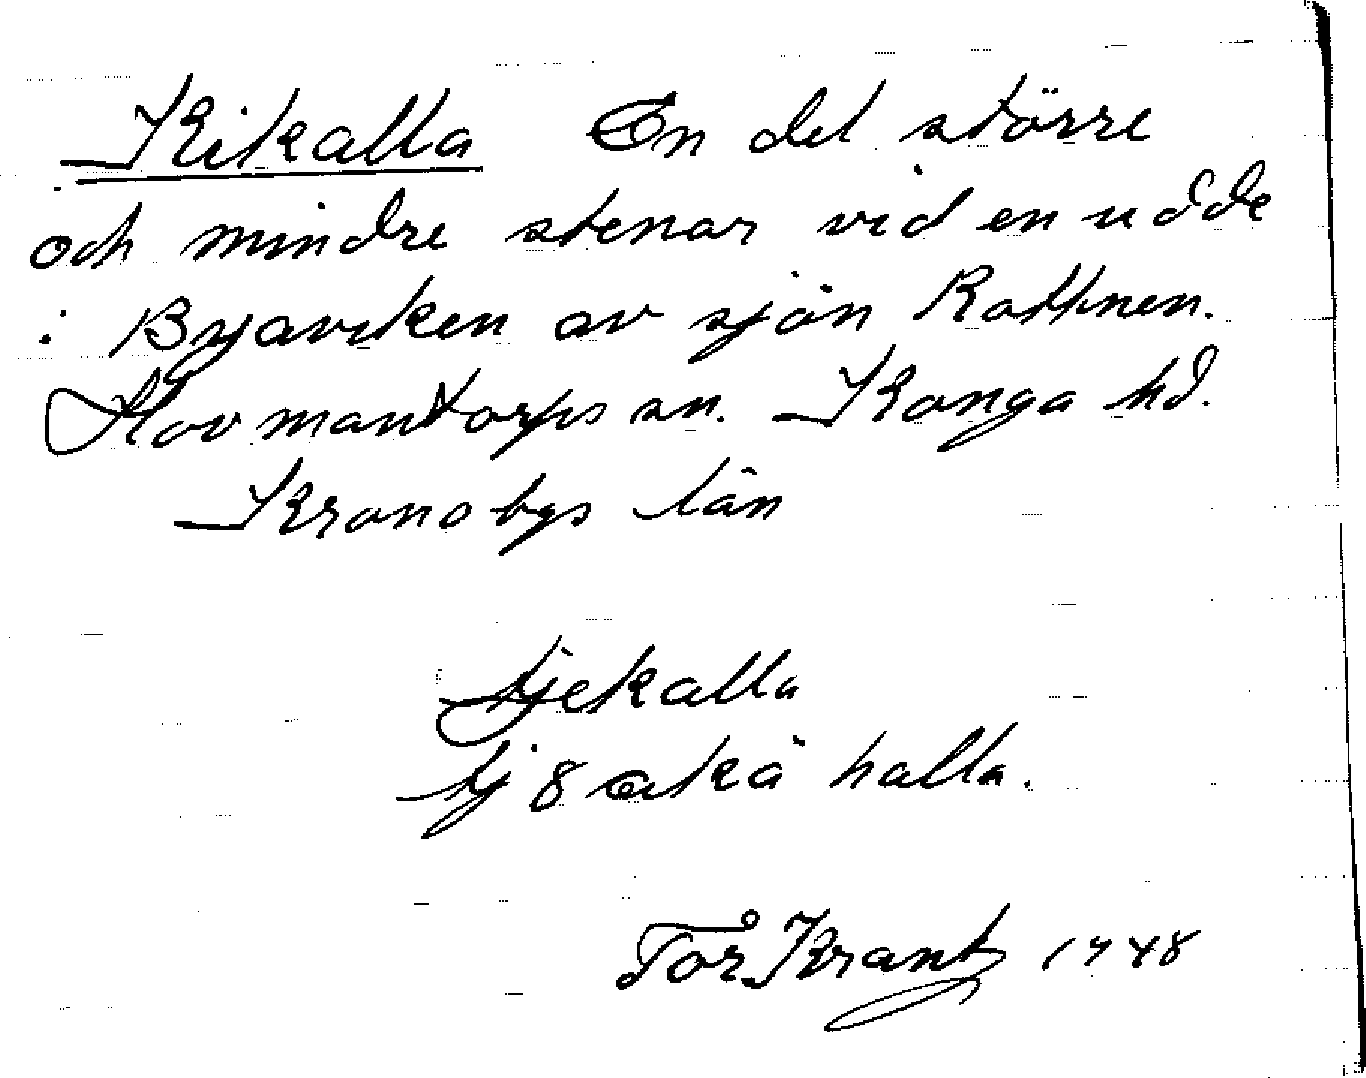 Kikalla En del större
och mindre stenar vid en udde
i Byaviken av sjön Rottnen.
Hovmantorps sn. Konga hd.
Kronobgs län
tjekalla
halla.
Krantz 1948